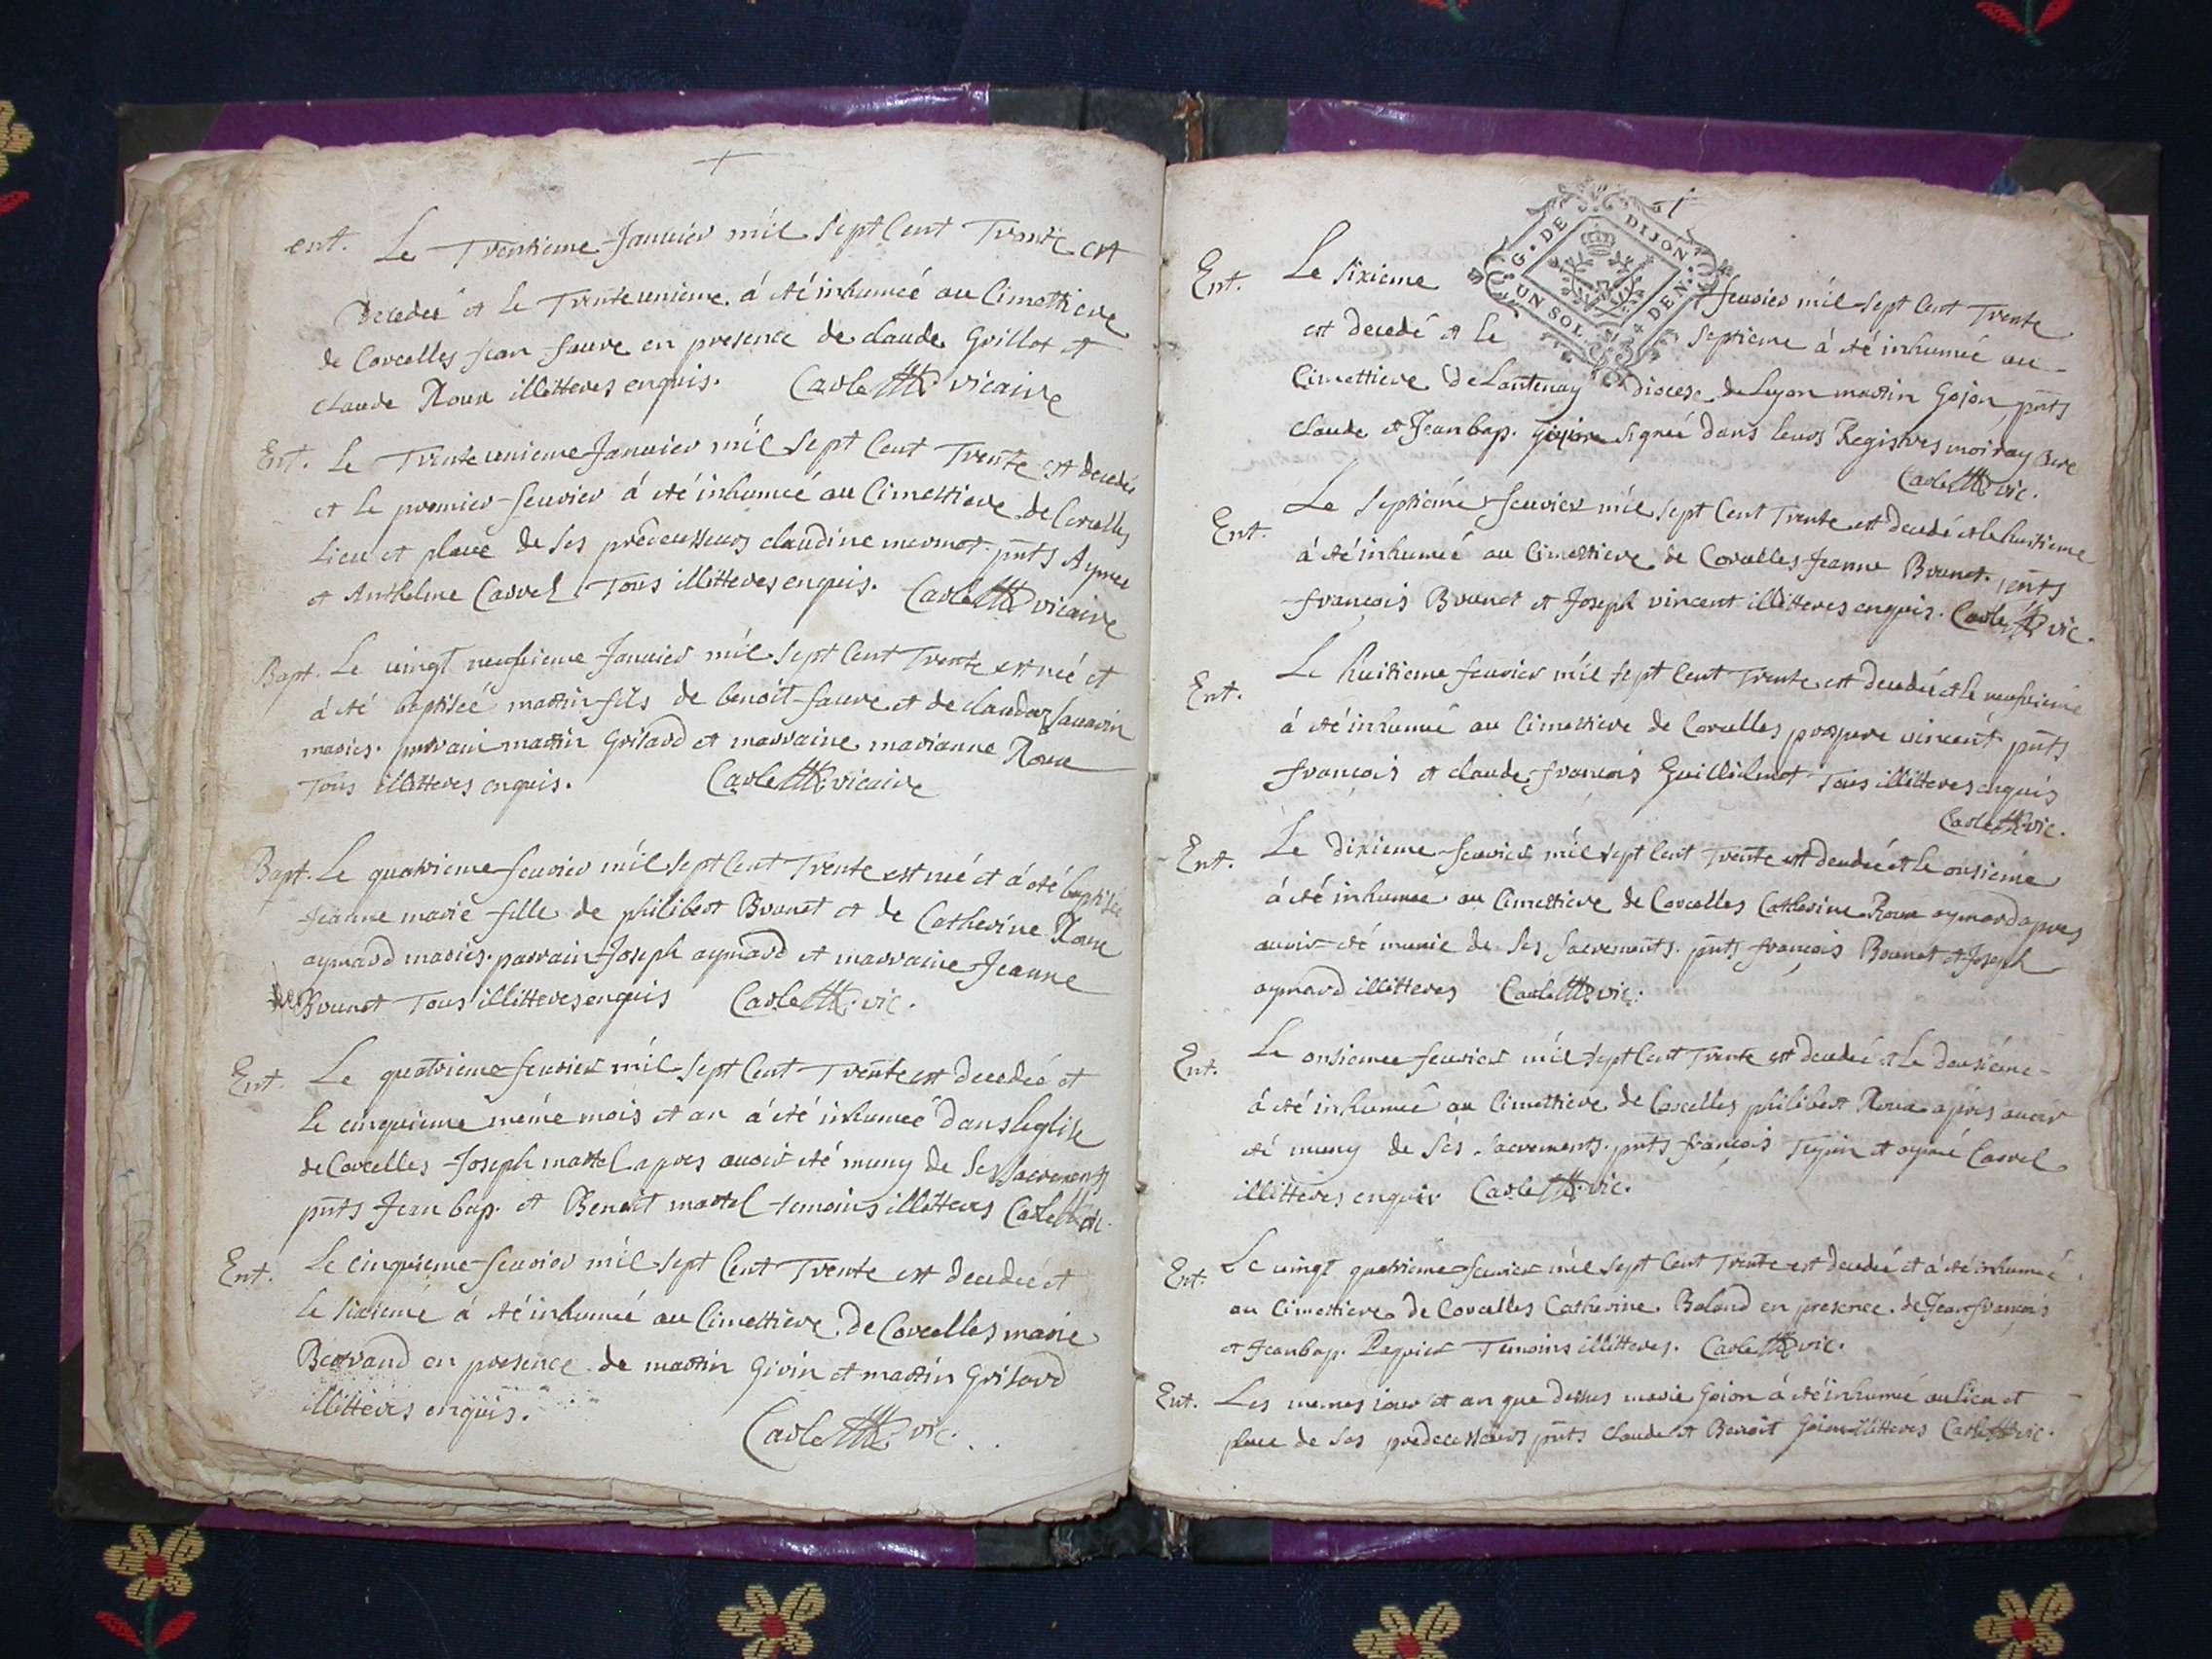 ent. Le Trentieme Januier mil Sept Cent Trente est
Decedeé et le Trenteunieme á eté inhumeé au Cimettiere
de Corcelles jean faure en presence de claude Guillot et
claude Roux illitteres enquis. Carle vicaire
Ent. Le Trenteunieme Januier mil Sept Cent Trente est decedeé
et le premier feurier á eté inhumeé au Cimettiere de Corcelles
Lieu et place de ses predecesseurs claudine mermet pnts Aymee
et Anthelme Carrel Tous illitteres enquis. Carle vicaire
Bapt. Le uingt neufuieme Januier mil Sept Cent Trente est neé et
á eté baptiseé martin fils de benoit faure et de claudaz
maries. parrain martin Grisard et marraine marianne Roux
Tous illitteres enquis. Carle vicaire
Bapt. Le quatrieme feurier mil Sept Cent Trente est neé et á eté baptiseé
Jeanne marie fille de philibert Brunet et de Catherine Roux
aymard maries. parrain Joseph aymard et marraine Jeanne
Brunet Tous illitteres enquis Carle vic.
Ent. Le quatrieme feurier mil Sept Cent Trente est decedeé et
le cinquieme méme mois et an á eté inhumeé dans leglise
de Corcelles Joseph martel apres auoir eté muny de ses sacrements
pnts Jean bap. et Benoit martel temoins illitteres Carle vic.
Ent. Le cinquieme feurier mil Sept Cent Trente est decedeé et
le sixieme á eté inhumeé au Cimettiere de Corcelles marie
Bertrand en presence de martin Givin et martin Grisard
illitteres enquis.
Carle vic.
G. DE DIJON
UN SOL 4 DEN.
Ent. Le sixieme feurier mil Sept Cent Trente
est decedé et le septieme á eté inhumeé au
Cimettiere de Lantenay diocese de Lyon martin Gojon pnts
claude et Jean bap. Gojon signeé dans leurs Registres moiray Cure
Carle vic.
Ent. Le septieme feurier mil sept Cent Trente est decedé et le huitieme
á eté inhumeé au Cimettiere de Corcelles Jeanne Brunet. pnts
francois Brunet et Joseph vincent illitteres enquis. Carle vic.
Ent. Le huitieme feurier mil sept Cent Trente est decedeé et le neufuieme
á eté inhumeé au Cimettiere de Corcelles prospere vincent pnts
francois et claude francois Guillielmot Tous illitteres enquis
Carle vic.
Ent. Le dixieme feurier mil sept Cent Trente est decedeé et le onsieme
á eté inhumee au Cimettiere de Corcelles Catherine Roux aymard apres
auoir eté munie de ses sacrements. pnts francois Brunet et Joseph
aymard illitteres Carle vic.
Ent. Le onsieme feurier mil sept Cent Trente est decedeé et le dousiéme
á eté inhumeé au Cimettiere de Corcelles philibert Roux apres auoir
eté muny de ses sacrements. pnts francois et aymé Carrel
illitteres enquis Carle vic.
Ent. Le uingt quatriéme feurier mil sept Cent Trente est decedeé et á eté inhumeé
au Cimettiere de Corcelles Catherine. Baland en presence. de Jean francois
et Jean bap. Temoins illitteres. Carle vic.
Ent. Les memes iour et an que dessus marie Goion á eté inhumeé au lieu et
place de ses predecesseurs pnts claude et Benoit Goion illitteres Carle vic.